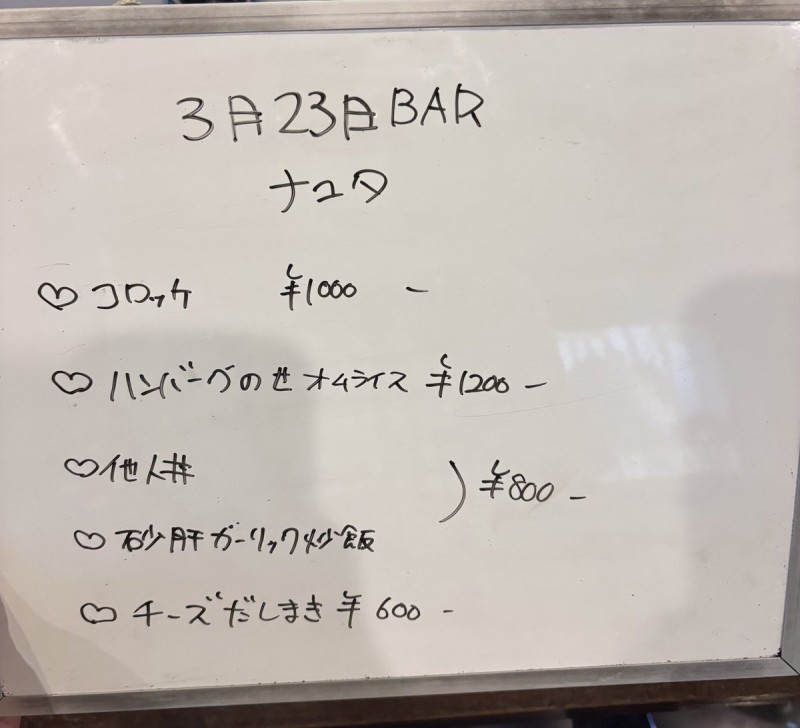 3月23日BAR
ナユタ
♡コロッケ ¥1000 ー
♡ハンバーグのせオムライス ¥1200 ー
♡他人丼
) ¥800 ー
♡砂肝ガーリック炒飯
♡チーズだしまき ¥600 ー